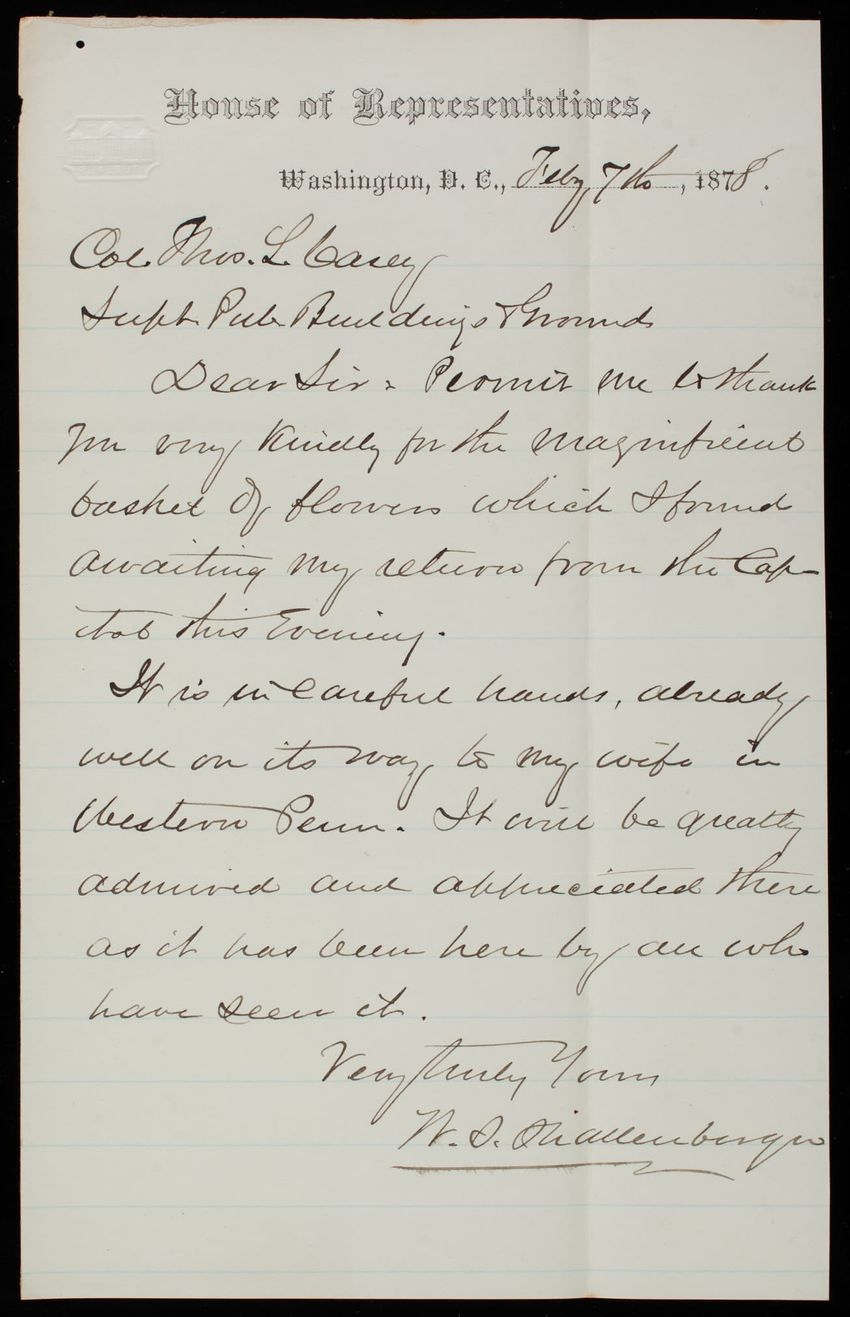 House of Representatives,
Washington, D. C., Feby 7th, 1878.
Col. Thos. L. Casey
Supt Pub Buildings & Grounds
Dear Sir - Permit me to thank
you very kindly for the magnificent
basket of flowers which I found
awaiting my return from the Cap-
itol this Evening.
It is in Careful hands, already
well on its way to my wife in
Western Penn. It will be greatly
admired and appreciated there
as it has been here by all who
have seen it.
Very truly Yours
W. S. Shallenberger